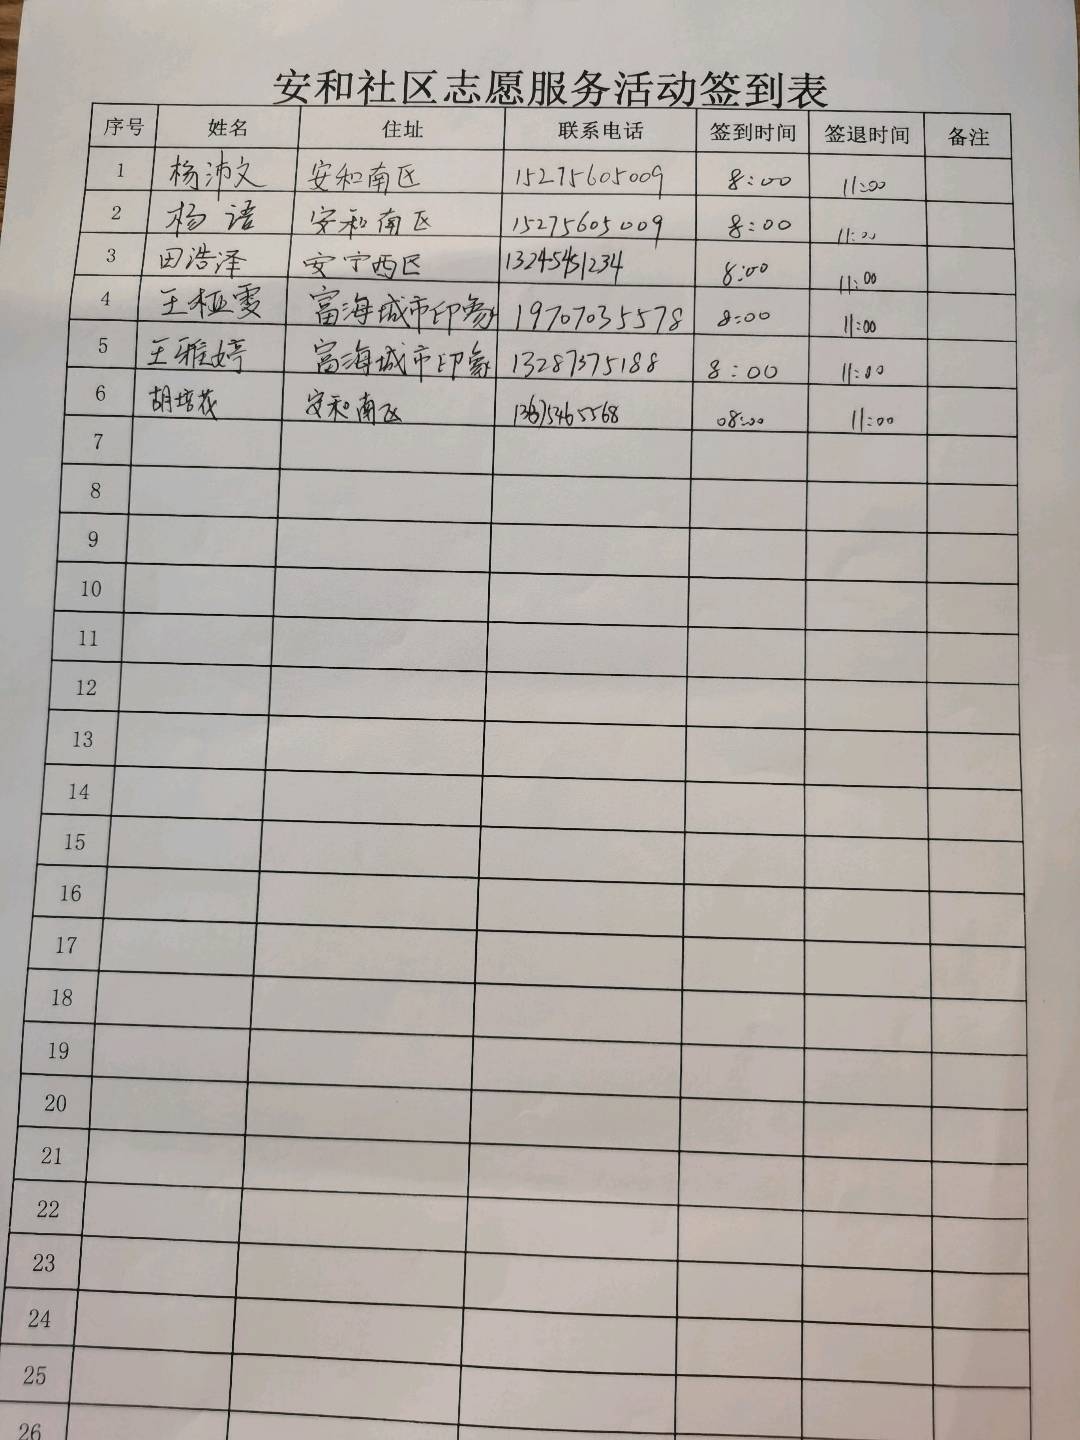 安和社区志愿服务活动签到表
序号 姓名 住址 联系电话 签到时间 签退时间 备注
1 杨沛文 安和南区 15275605009 8:00 11:00
2 杨语 安和南区 15275605009 8:00 11:00
3 田浩泽 安宁西区 8:00 11:00
4 王桠雯 富海城市印象 19707035578 8:00 11:00
5 王雅婷 富海城市印象 13287375188 8:00 11:00
6 胡培花 安和南区 08:00 11:00
7
8
9
10
11
12
13
14
15
16
17
18
19
20
21
22
23
24
25
26